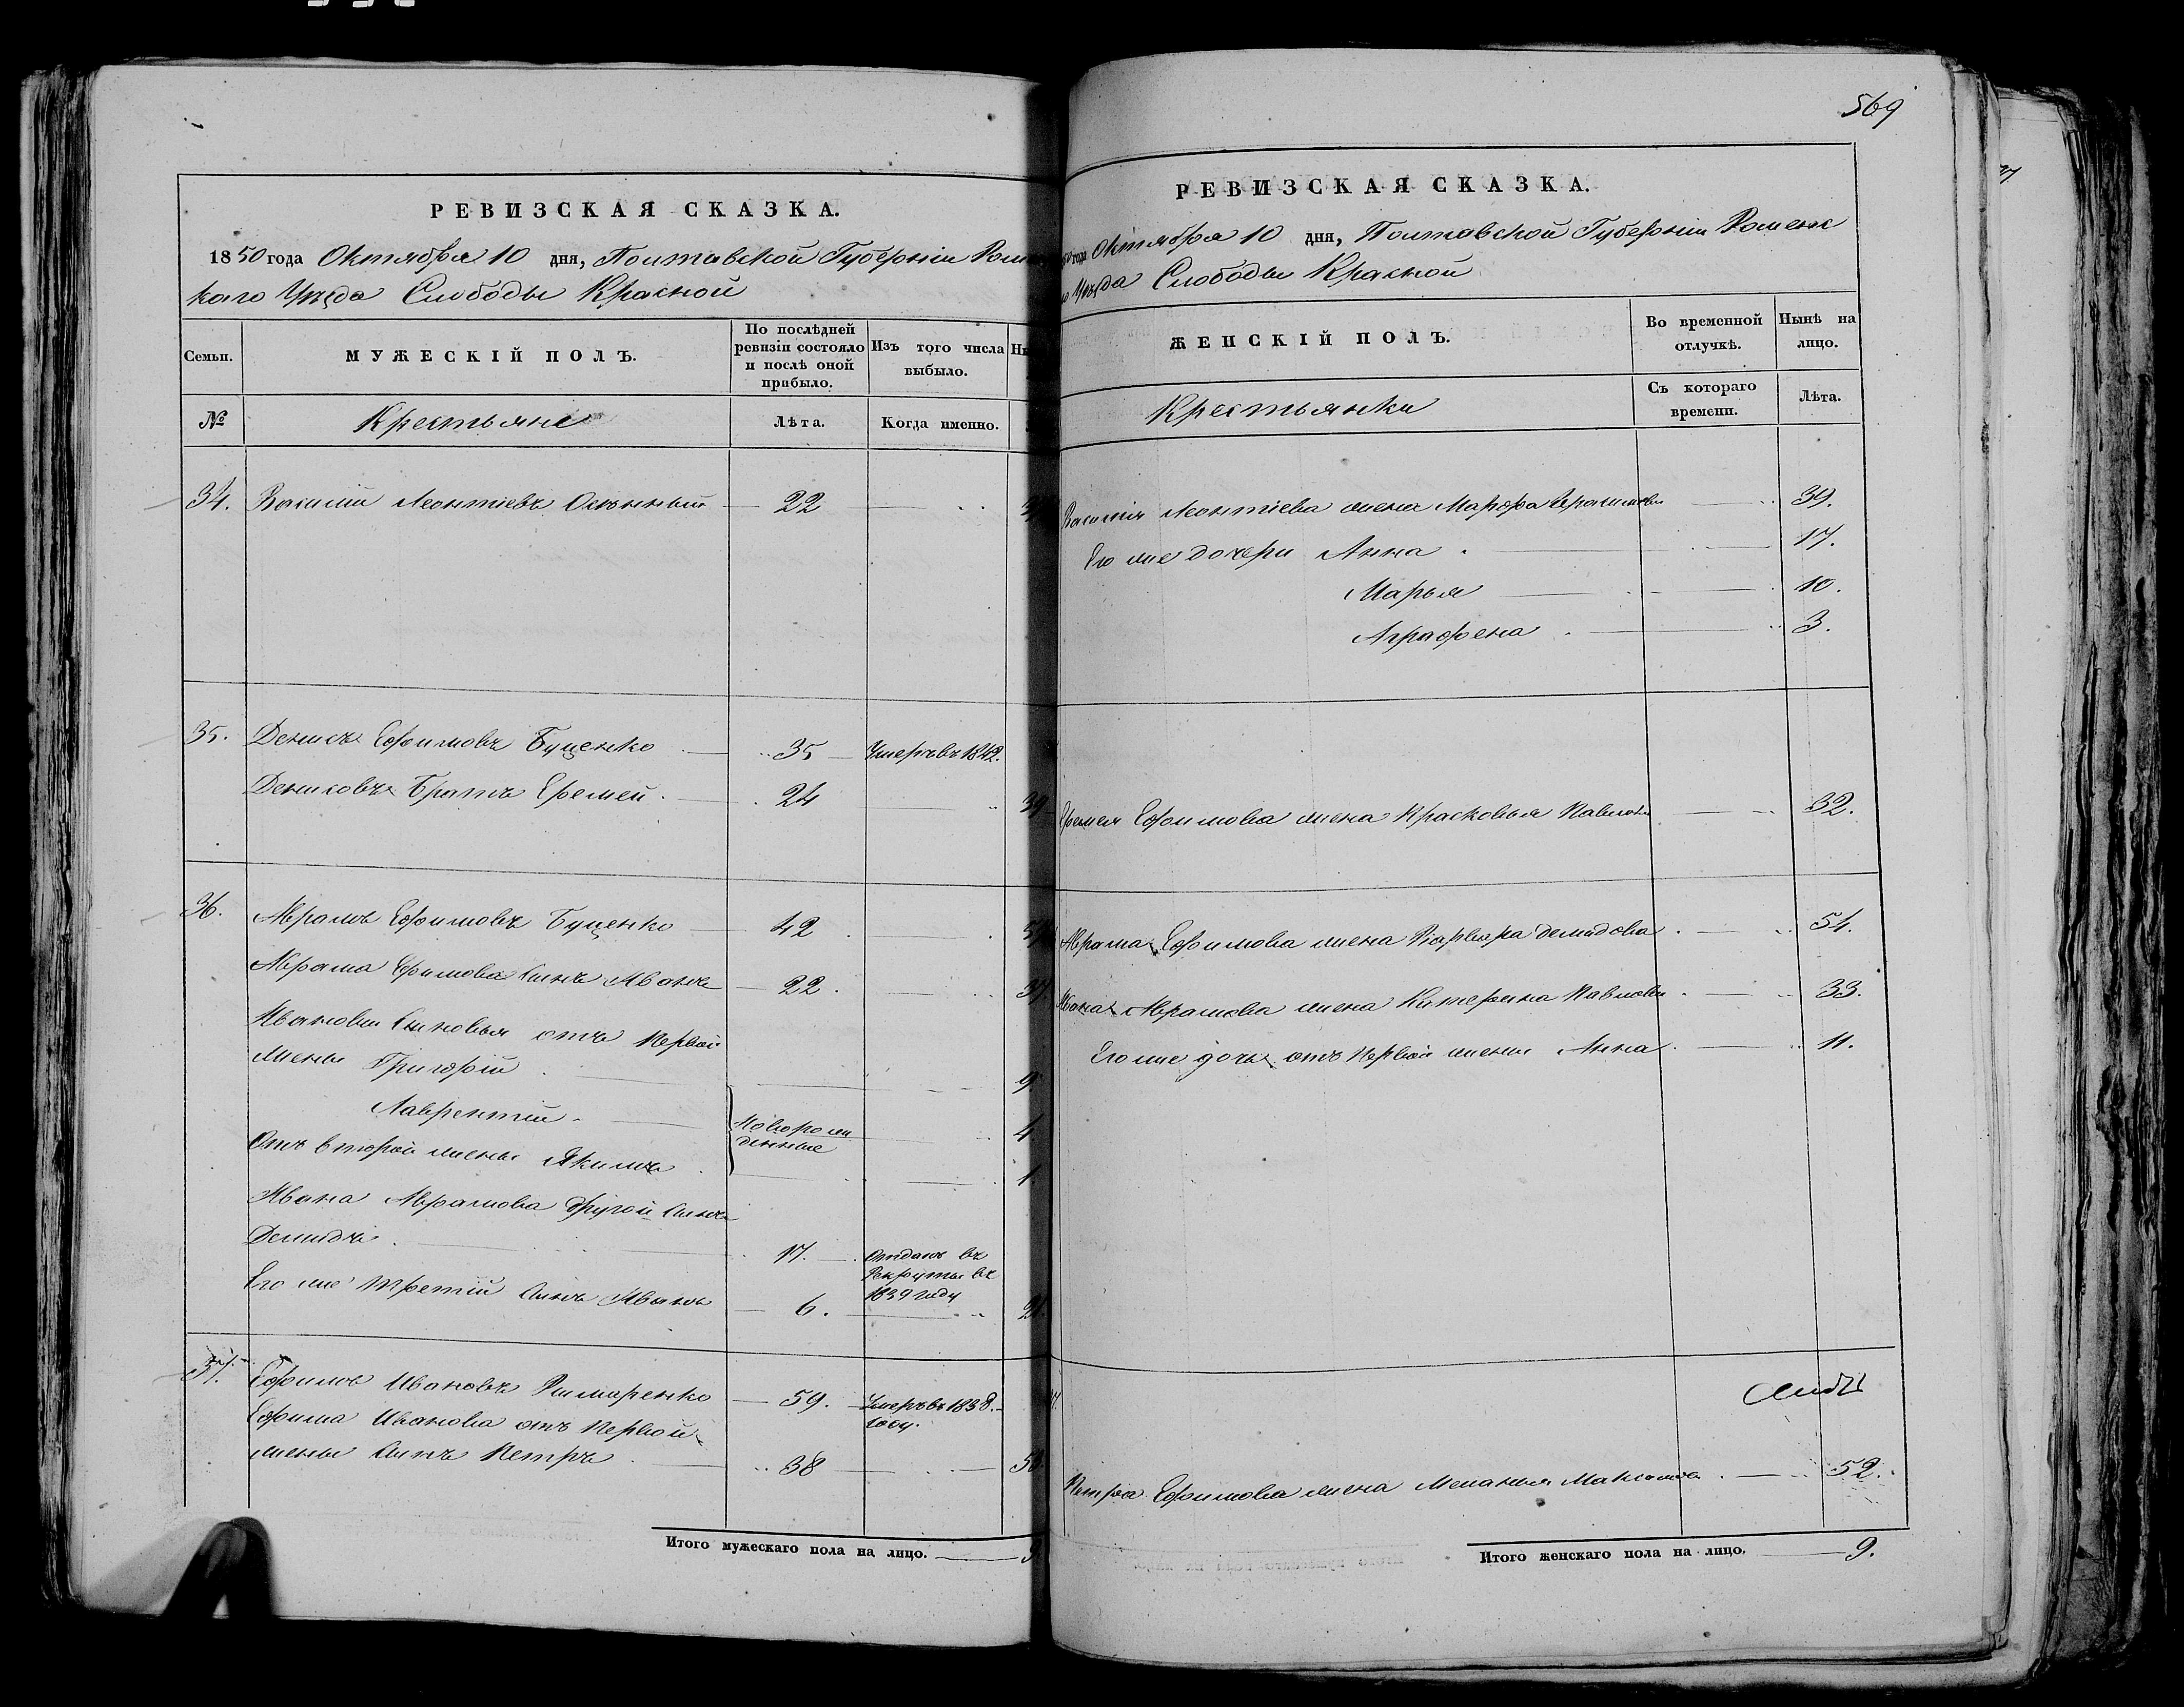 РЕВИЗСКАЯ СКАЗКА.
1850 года Октября 10 дня, Полтавской Губерніи Ромен
каго Уѣзда Слободы Красной
Семьи.
МУЖЕСКІЙ ПОЛЪ.
По послѣдней ревизіи состояло и послѣ оной прибыло.
Изъ того числа выбыло.
№
Крестьяне
Лѣта.
Когда именно.
34. Василій Леонтіевъ 22
35. Денисъ Ефимовъ Буценко 35 Умеръ въ 1842.
Денисовъ Братъ Еремей. 24 39
36. Аврамъ Ефимовъ Буценко 42
Аврама Ефимова Сынъ Иванъ 22.
Ивановы Сыновья отъ Первой
жены Григорій 9
Лаврентій Новорож 4
денные
Отъ второй жены Якимъ 1
Ивана Аврамова другой Сынъ
Демидъ 17. Отданъ въ
Рекруты въ
1839 году
Его же третій Сынъ Иванъ 6.
37. Ефимъ Ивановъ 59. Умеръ въ 1838.
году.
Ефима Иванова отъ Первой
жены Сынъ Петръ 38
Итого мужескаго пола на лицо.
569
РЕВИЗСКАЯ СКАЗКА.
года Октября 10 дня, Полтавской Губерніи Роменс
Уѣзда Слободы Красной
ЖЕНСКІЙ ПОЛЪ.
Во временной отлучкѣ.
Нынѣ на лицо.
Крестьянки
Съ котораго времени.
Лѣта.
Василія Леонтіева жена Марфа Герасимова 39.
Его же дочери Анна 17.
Марья 10.
Аграфена 3.
Еремея Ефимова жена Прасковья Павлова 32.
Аврама Ефимова жена Варвара Демидова 54.
Ивана Аврамова жена Катерина Павлова 33.
Его же дочь отъ Первой жены Анна 11.
Петра Ефимова жена Меланья Максимова 52.
Итого женскаго пола на лицо. 9.